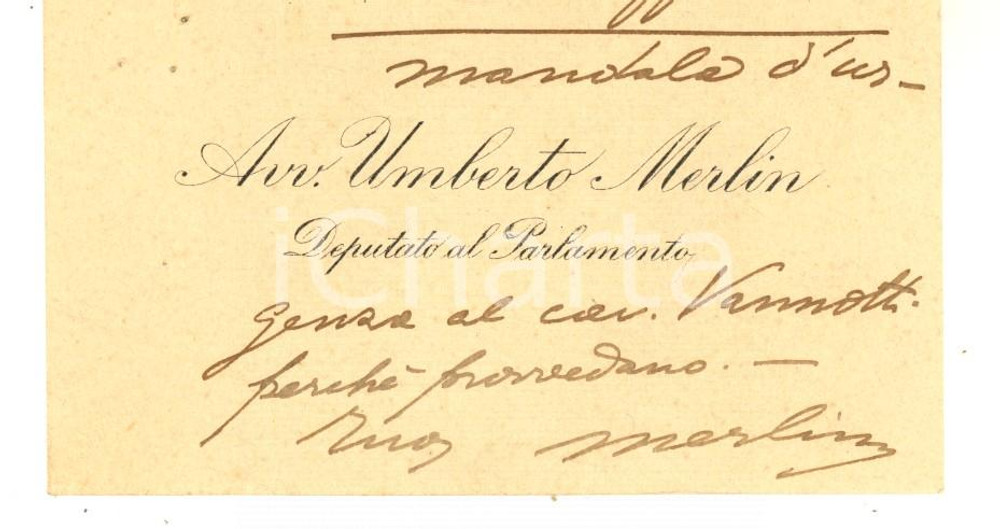 mandala d'ur-
Avv. Umberto Merlin
Deputato al Parlamento
iCharta
genza al cav. Vannotti
perché provvedano. —
Tuo Merlin